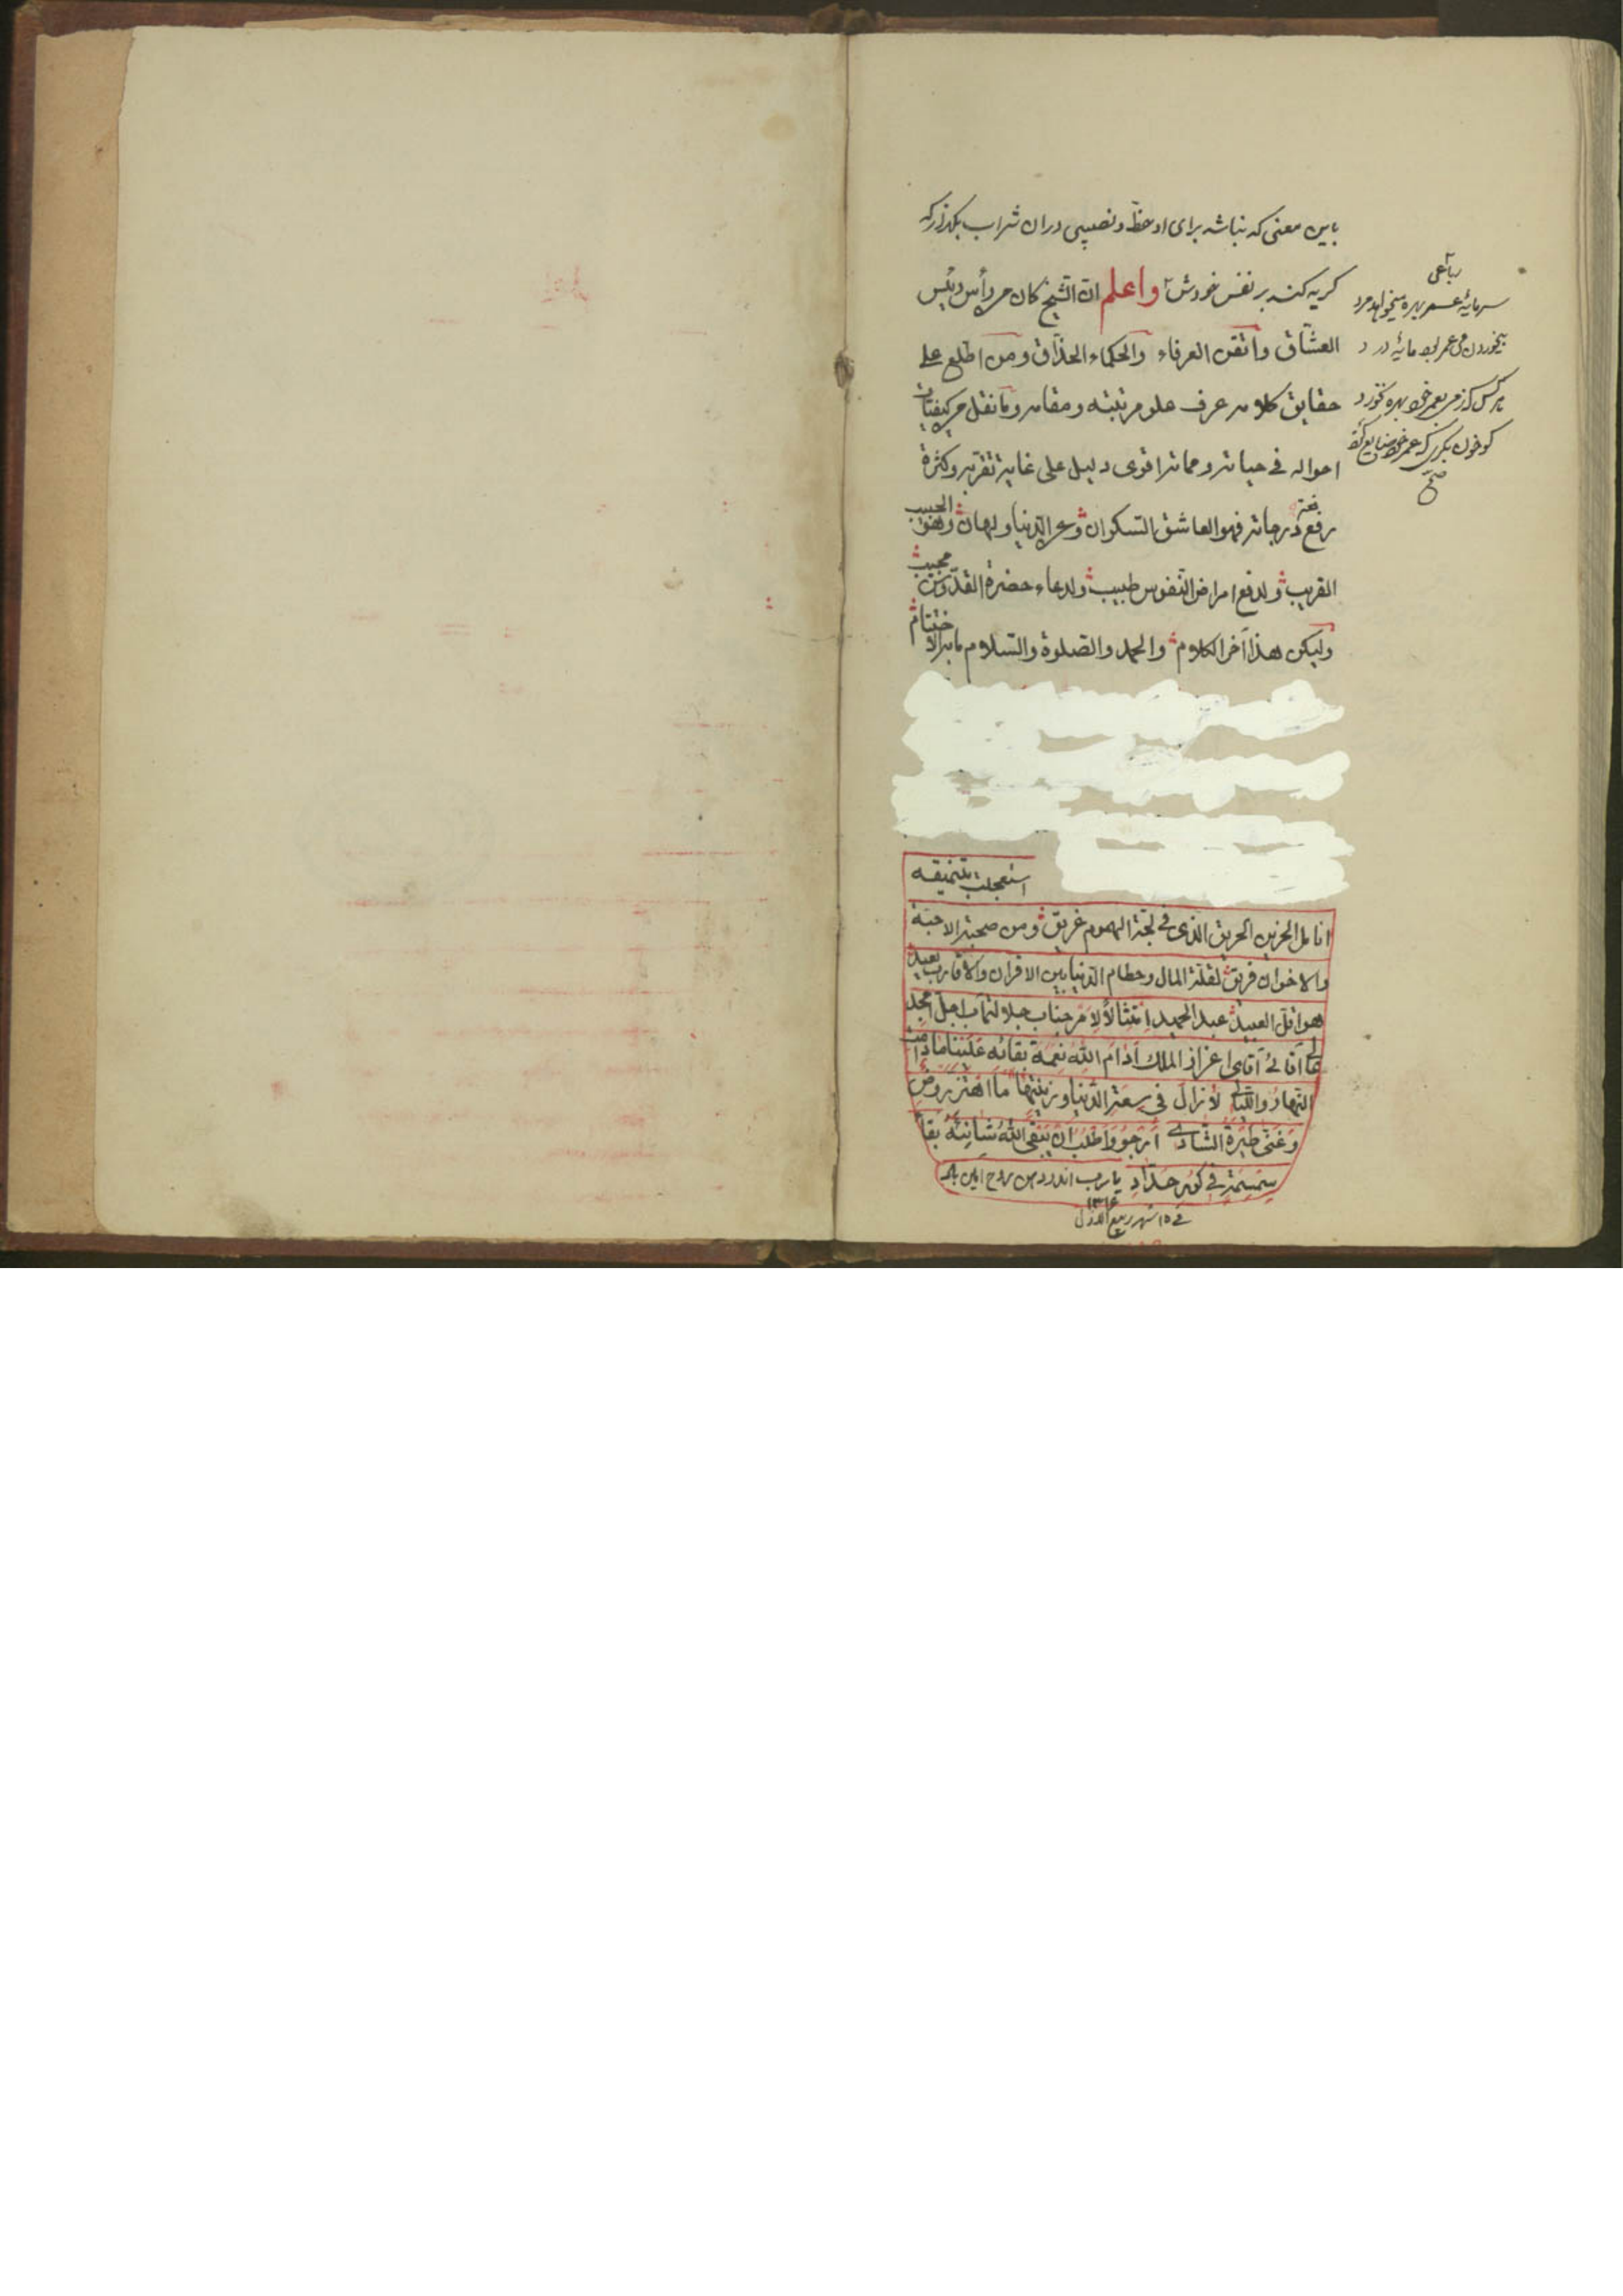 باین معنی که نباشد برای او حظ و نصیبی در ان شراب بگذار که
کریه کند بر نفس خودش واعلم ان الشیخ کان من رأس رئیس
العشاق واتقن العرفاء والحکماء الحذاق ومن اطلع علی
حقایق کلامه عرف علو مرتبته ومقامه وما نقل من کیفیات
احواله فی حیاته ومماته اقوی دلیل علی غایة تقربه وکثرة
رفع درجاته فهو العاشق السکران وعن الدنیا ولهان وهو الحبیب
القریب ولدفع امراض النفوس طبیب ولدعاء حضرة القدوس مجیب
ولیکن هذا آخر الکلام والحمد والصلوة والسلام مابه الاختتام
رباعی
سرمایهٔ عمر بهره میخواهد مرد
هر کس که ز می بعمر خود بهره نخورد
کو خون بگری که عمر خود ضایع کرد
صح
استعجلت بتنمیقه
انامل الحزین الحریق الذی فی لجة الهموم غریق ومن صحبة الاحبة
والاخوان فریق لقلة المال وحطام الدنیا بین الاقران والاقارب بعید
هو اقل العبید عبد الحمید امتثالاً لامر جناب جلالتمآب اجل امجد
آقای اعزاز الملک ادام الله نعمة بقائه علینا ما دامت
النهار واللیالی لازال فی سعة الدنیا وزینتها ما اهتز روض
وغنی طیرة الشادی ارجو واطلب ان یبقی الله شانئه بقا
سمسمة فی کور حداد یارب
فی ١٥ شهر ربیع الاول